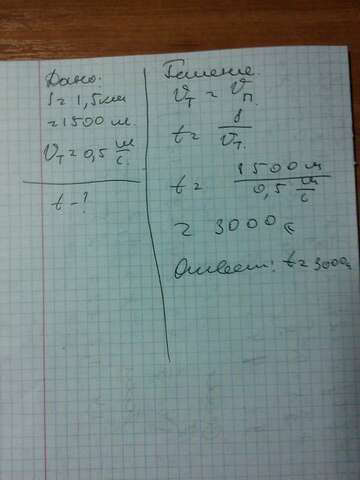 Дано:
S = 1,5 км
= 1500 м.
Vт = 0,5 м/с.
t - ?
Решение.
Vт = Vп.
t = S/Vт.
t = 1500 м / 0,5 м/с
= 3000 с
Ответ: t = 3000 с